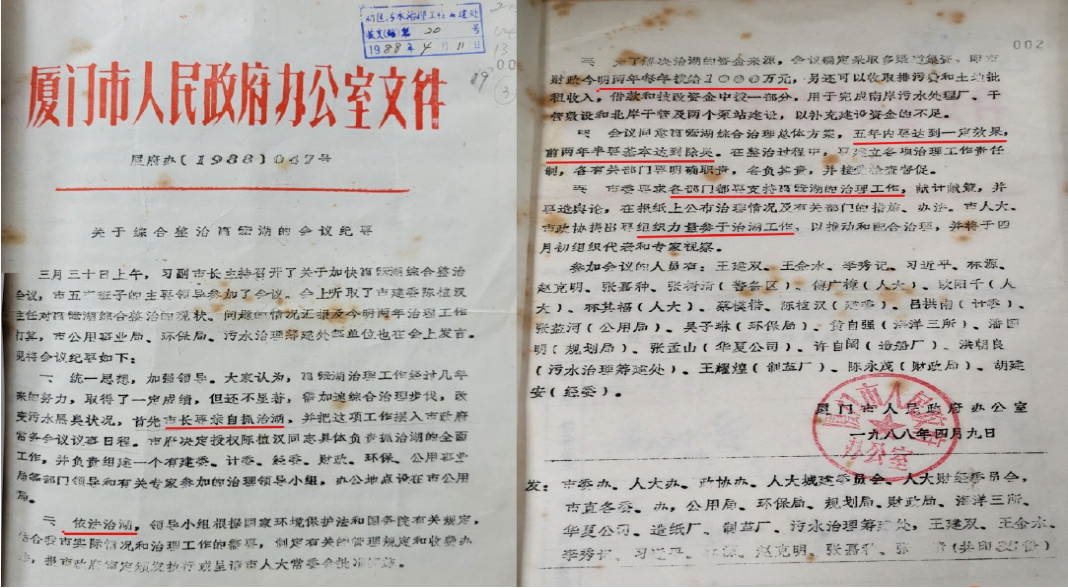 1988年4月11日
厦门市人民政府办公室文件
厦府办〔1988〕047号
关于综合整治筼筜湖的会议纪要
三月三十日上午，习副市长主持召开了关于加快筼筜湖综合整治
会议，市五套班子的主要领导参加了会议。会上听取了市建委陈植汉
主任对筼筜湖综合整治的现状、问题的情况汇报及今明两年治理工作
打算，市公用事业局、环保局、污水治理筹建处等单位也在会上发言。
现将会议纪要如下：
一、统一思想，加强领导。大家认为，筼筜湖治理工作经过几年
来的努力，取得了一定成绩，但还不显著，需加速综合治理步伐，改
变污水黑臭状况，首先市长要亲自抓治湖，并把这项工作摆入市政府
常务会议议事日程。市府决定授权陈植汉同志具体负责抓治湖的全面
工作，并负责组建一个有建委、计委、经委、财政、环保、公用事业
局等部门领导和有关专家参加的治理领导小组，办公地点设在市公用
局。
二、依法治湖，领导小组根据国家环境保护法和国务院有关规定，
结合我市实际情况和治理工作的需要，制定有关的管理规定和收费办
法，报市政府审定颁发执行或呈请市人大常委会批准
002
三、为了解决治湖的资金来源，会议确定采取多渠道筹资，即市
财政今明两年每年拨给1000万元，另还可以收取排污费和土地批
租收入，借款和技改资金中投一部分，用于完成南岸污水处理厂、干
管敷设和北岸干管及两个泵站建设，以补充建设资金的不足。
四、会议同意筼筜湖综合治理总体方案，五年内要达到一定效果，
前两年半要基本达到除臭。在整治过程中，要建立各项治理工作责任
制，各有关部门要明确职责，各负其责，并接受检查督促。
五、市委要求各部门都要支持筼筜湖的治理工作，献计献策，并
要造舆论，在报纸上公布治理情况及有关部门的措施、办法。市人大、
市政协提出要组织力量参于治湖工作，以推动和配合治理，并将于四
月初组织代表和专家视察。
参加会议的人员有：王建双、王金水、李秀记、习近平、林源、
赵克明、张嘉种、张树清（警备区）、傅广樟（人大）、欧阳千（人
大）、林其福（人大）、蔡模楷、陈植汉（建委）、吕拱南（计委）、
张益河（公用局）、吴子琳（环保局）、黄自强（海洋三所）、潘国
明（规划局）、张孟山（华夏公司）、许自阔（造船厂）、洪朝良
（污水治理筹建处）、王耀煌（制药厂）、陈永茂（财政局）、胡建
安（经委）。
厦门市人民政府办公室
一九八八年四月九日
厦门市人民政府
办公室
发：市委办、人大办、政协办、人大城建委员会、人大财经委员会，
市直各委、办，公用局、环保局、规划局、财政局、海洋三所、
华夏公司、造纸厂、制药厂、污水治理筹建处，王建双、王金水、
李秀记、习近平、林源、赵克明、张嘉种、张 清（共印35份）